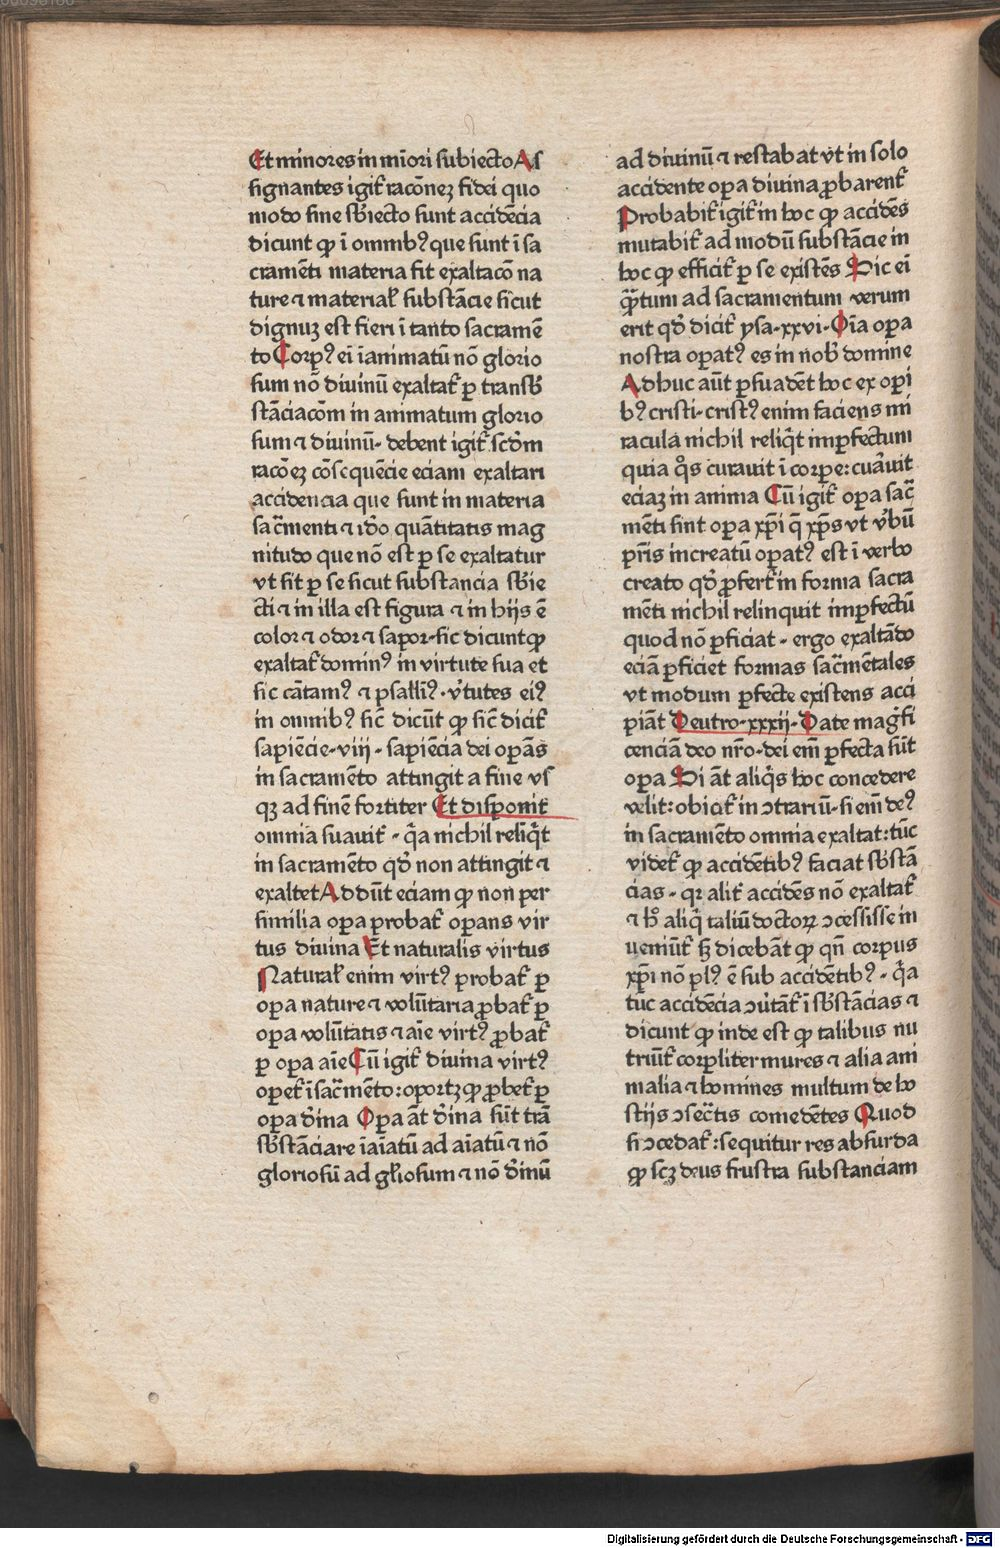 Et minores in mīori subiecto As
signantes igit᷑ racōnez fidei quo
modo sine sb̄iecto sunt accidēcia
dicunt ꝙ ī omnibꝰ que sunt ī sa
cramēti materia fit exaltacō na
ture ⁊ material᷑ substācie sicut
dignuz est fieri ī tanto sacramē
to Corpꝰ ei īanimatū nō glorio
sum nō diuinū exaltat᷑ ꝑ transb̄
stāciacōm in animatum glorio
sum ⁊ diuinū· debent igit᷑ scd̄m
racōez cōsequēcie eciam exaltari
accidencia que sunt in materia
sac̄menti ⁊ idō quātitatis mag
nitudo que nō est ꝑ se exaltatur
vt sit ꝑ se sicut substancia sb̄ie
cti ⁊ in illa est figura ⁊ in hijs ē
color ⁊ odor ⁊ sapor· sic dicunt ꝙ
exaltat᷑ dominꝰ in virtute sua et
sic cātamꝰ ⁊ psallīꝰ· v̄tutes eiꝰ
in omnibꝰ sic̄ dicūt ꝙ sic̄ dicit᷑
sapiēcie· viij· sapiēcia dei opans
in sacramēto attingit a fine vs
qꝫ ad finē fortiter Et disponit
omnia suauit᷑· q̄a nichil reliq̄t
in sacramēto qd̄ non attingit ⁊
exaltet Addūt eciam ꝙ non per
similia opa probat᷑ opans vir
tus diuina Et naturalis virtus
Natural᷑ enim virtꝰ probat᷑ ꝑ
opa nature ⁊ volūtaria ꝓbat᷑ ꝑ
opa volūtatis ⁊ aīe virtꝰ ꝓbat᷑
ꝑ opa aīe Cū igit᷑ diuina virtꝰ
opet᷑ ī sac̄mēto: oportꝫ ꝙ ꝓbet᷑ ꝑ
opa d̄ina Opa āt d̄ina sūt trā
sb̄stāciare īaīatū ad aīatū ⁊ nō
gloriosū ad gl̄iosum ⁊ nō d̄inū
ad diuinū ⁊ restabat vt in solo
accidente opa diuina ꝓbarent᷑
Probabit᷑ igit᷑ in hoc ꝙ accidēs
mutabit᷑ ad modū substācie in
hoc ꝙ efficit᷑ ꝑ se existēs Sic ei
q̄ntum ad sacramentum verum
erit qd̄ dicit᷑ ysa· xxvi· Oīa opa
nostra opatꝰ es in nob̄ domine
Adhuc aūt ꝑsuadēt hoc ex opi
bꝰ cristi· cristꝰ enim faciens mi
racula nichil reliq̄t imꝑfectum
quia q̊s curauit ī corpe: cuāuit
eciaz in anima Cū igit᷑ opa sac̄
mēti sint opa xp̄i q̄ xp̄s vt v̄bū
pr̄is increatū opatꝰ est ī verbo
creato qd̄ ꝓfert᷑ in forma sacra
mēti nichil relinquit imꝑfectū
quod nō ꝑficiat· ergo exaltādo
eciā ꝑficiet formas sac̄mētales
vt modum ꝑfecte existens acci
piāt Deutro· xxxij· Date mag̊fi
cenciā deo nr̄o· dei em̄ ꝑfecta sūt
opa Si āt aliq̊s hoc concedere
velit: obicit᷑ in ꝯtrariū· si em̄ deꝰ
in sacramēto omnia exaltat: tūc
videt᷑ ꝙ accidētibꝰ faciat sb̄stā
cias· qr alit᷑ accidēs nō exaltat᷑
⁊ h̄ aliq̄ taliū doctoꝝ ꝯcessisse in
ueniūt᷑ sꝫ dicebāt ꝙ qn̄ corpus
xp̄i nō plꝰ ē sub accidētibꝰ· q̄a
tuc accidēcia ꝯūtāt᷑ ī sb̄stācias ⁊
dicunt ꝙ inde est ꝙ talibus nu
triūt᷑ corpliter mures ⁊ alia ani
malia ⁊ homines multum de ho
stijs ꝯsec̄tis comedētes Quod
si ꝯcedat᷑: sequitur res absurda
ꝙ scꝫ deus frustra substanciam
Digitalisierung gefördert durch die Deutsche Forschungsgemeinschaft - DFG